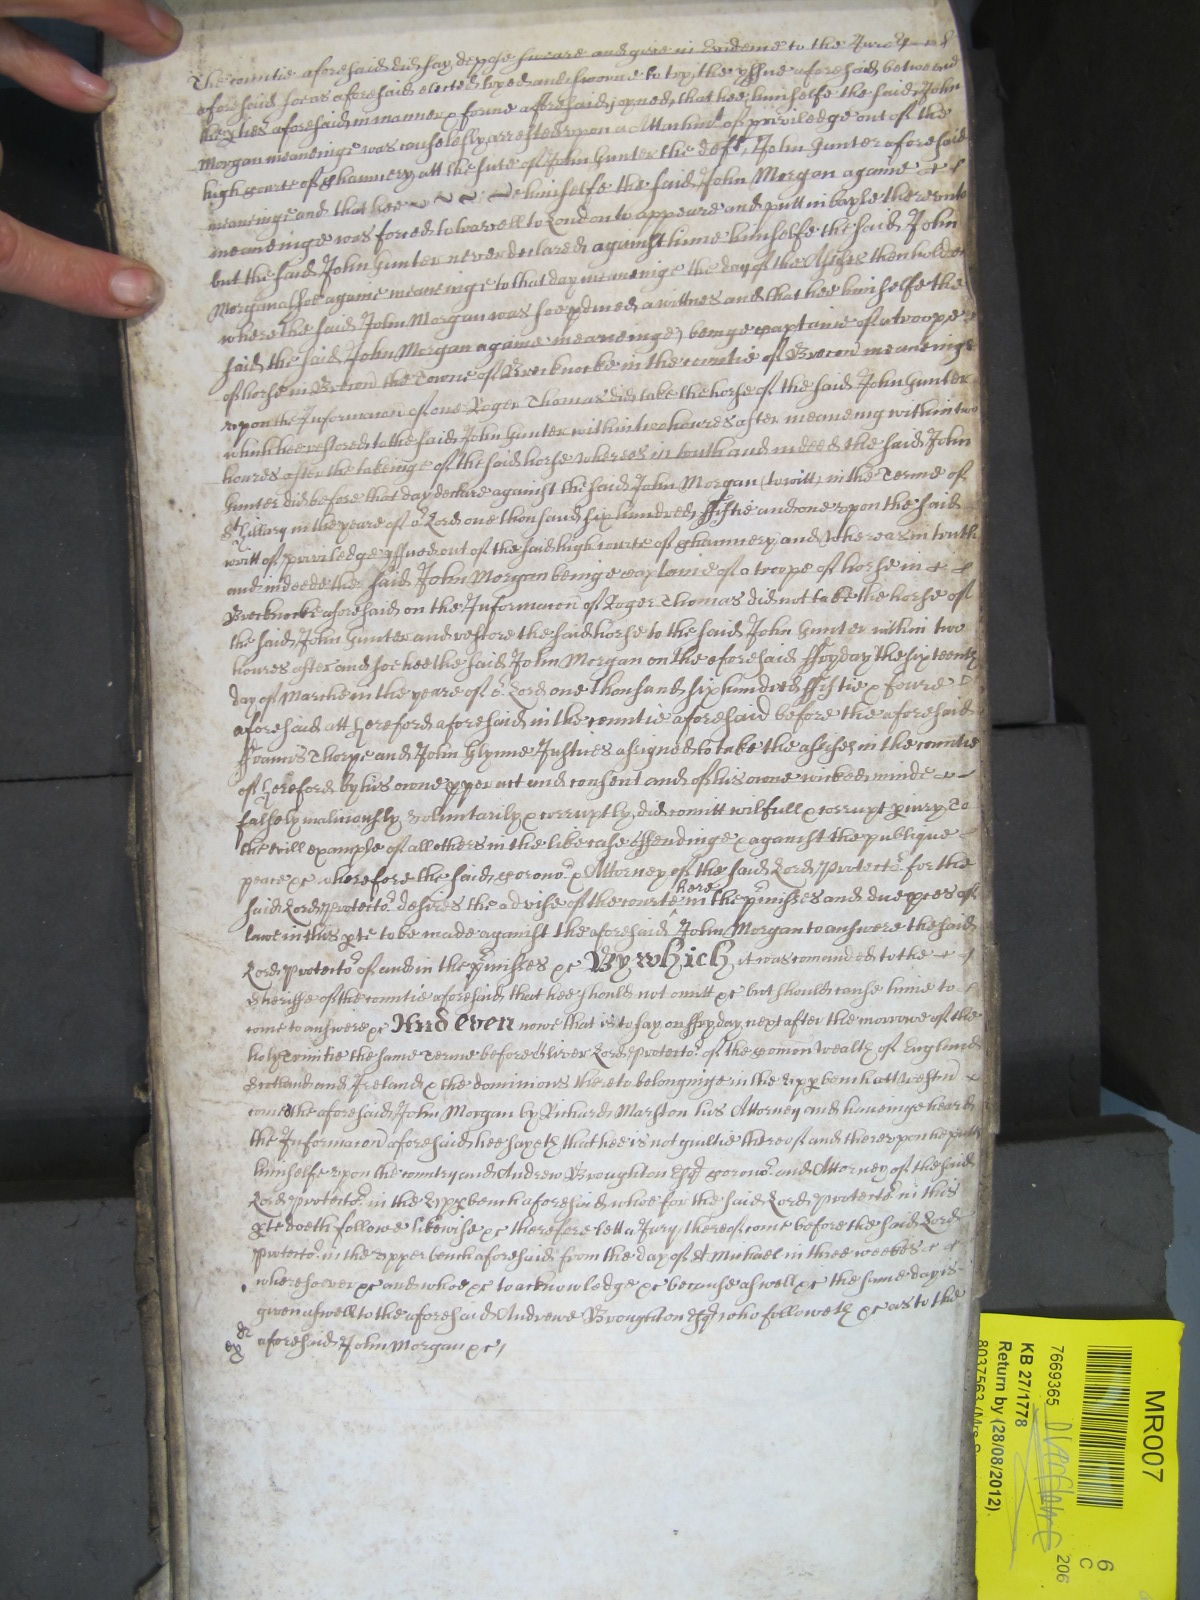 The countie aforesaid did say depose sweare and give in Evidence to the Jurors
aforesaid soe as aforesaid elected tryed and sworne to try the yssue aforesaid betweene
the pties aforesaid in manner & forme aforesaid joyned, that hee himselfe the said John
Morgan meaneinge was causelessly arrested upon a Attachmt of priviledge out of the
high Courte of Chauncery att the suite of John Gunter the deft, John Gunter aforesaid
meaneinge and that hee himselfe the said John Morgan againe
meaneinge was forced to travell to London to appeare and putt in bayle thereunto
but the said John Gunter never declared against him himselfe the said John
Morgan alsoe againe meaneinge to that day meaneinge the day of the Assizes then holden
where the said John Morgan was soe pduced a wittnes and that hee himselfe the
said the said John Morgan againe meaneinge) beinge captaine of a troope
of horse in Brecon the Towne of Brecknocke in the countie of Brecon meaneinge
upon the Informacon of one Roger Thomas did take the horse of the said John Gunter
which hee restored to the said John Gunter within two houres after meaneing within two
houres after the takeinge of the said horse whereas in truth and indeed the said John
Gunter did before that day declare against the said John Morgan (to witt) in the Terme of
St Hillary in the yeare of or Lord one thousand six hundred fiftie and one upon the said
writt of priviledge yssued out of the said high courte of Chauncery and whereas in truth
and indeede the said John Morgan beinge captaine of a troope of horse in
Brecknocke aforesaid on the Informacon of Roger Thomas did not take the horse of
the said John Gunter and restore the said horse to the said John Gunter within two
houres after and soe hee the said John Morgan on the aforesaid ffryday the sixteenth
day of Marche in the yeare of or Lord one thousand six hundred ffiftie & foure
aforesaid att Hereford aforesaid in the countie aforesaid before the aforesaid
Francis Thorpe and John Glynne Justices assigned to take the assizes in the countie
of Hereford by his owne pper act and consent and of his owne wicked minde
falsely maliciously voluntarily & corruptly did comitt wilfull & corrupt piury To
the evill example of all others in the like case offendinge & against the publique
peace &c wherefore the said Corono & Attorney of the said Lord Protector for the
said Lord Protector desires the advise of the courte here in the pmisses and due pces of
lawe in this pte to be made against the aforesaid John Morgan to answere the said
Lord Protector of and in the pmisses &c By which it was comanded to the
Sheriffe of the countie aforesaid that hee should not omitt &c but should cause him to
come to answere &c And Even nowe that is to say on ffryday next after the morrowe of the
holy Trinitie the same Terme before Oliver Lord Protector of the Comon Wealth of England
Scotland and Ireland & the dominions thereto belonginge in the upp bench att Westm
comes the aforesaid John Morgan by Richard Marston his Attorney and haveinge heard
the Informacon aforesaid hee sayeth that hee is not guiltie thereof and thereupon he putts
himselfe upon the country and Andrew Broughton Esqr Corono and Attorney of the said
Lord Protector in the upp bench aforesaid whoe for the said Lord Protector in this
pte doeth followe likewise &c therefore lett a Jury thereof come before the said Lord
Protector in the upper bench aforesaid from the day of St Michael in three weekes
wheresoever &c and whoe &c to acknowledge &c because aswell &c the same day is
given aswell to the aforesaid Andrewe Broughton Esqr who followeth &c as to the
aforesaid John Morgan &c
MR007
6
C
206
7669365
KB 27/1778
Return by (28/08/2012)